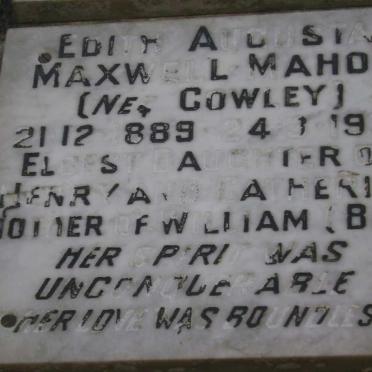 EDITH AUGUSTA
MAXWELL MAHO
(NEE COWLEY)
21 12 1889 24 3 19
ELDEST DAUGHTER O
HENRY AND KATHERI
MOTHER OF WILLIAM (B
HER SPIRIT WAS
UNCONQUERABLE
HER LOVE WAS BOUNDLES